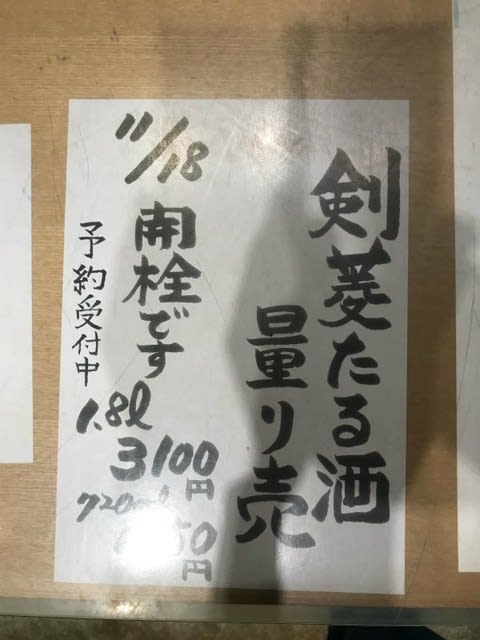 剣菱たる酒
量り売
11/18
開栓です
予約受付中
1.8l
3100円
720ml
円